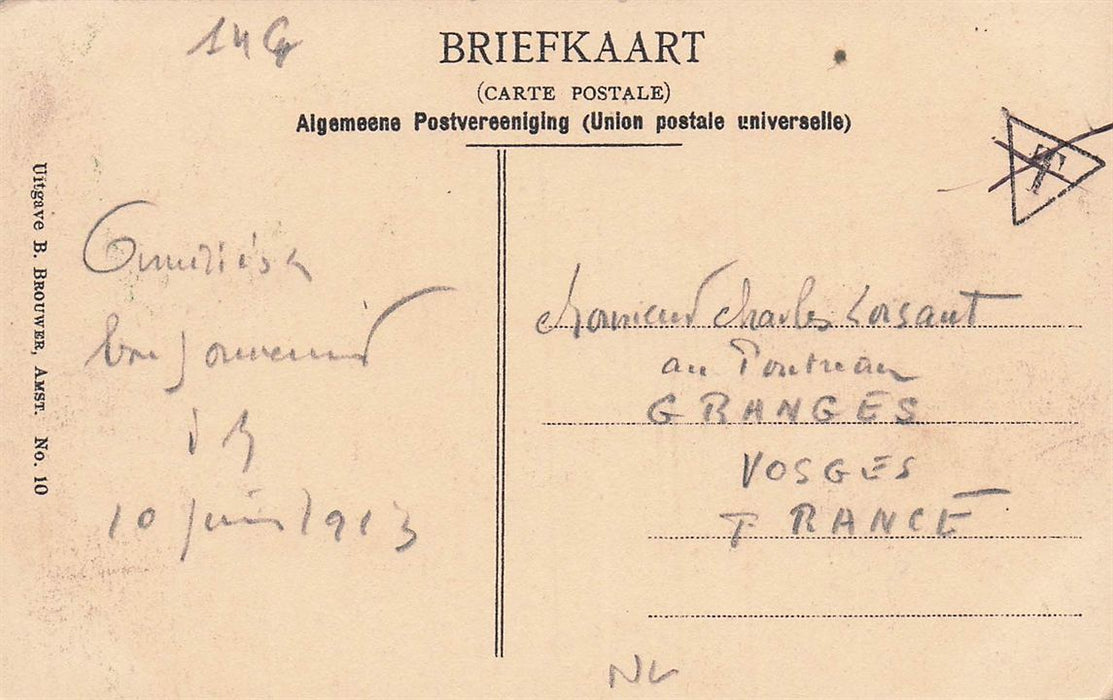 BRIEFKAART
(CARTE POSTALE)
Algemeene Postvereeniging (Union postale universelle)
T
Uitgave B. BROUWER, AMST. No. 10
bon souvenir
10 juin 1913
Monsieur Charles
au
GRANGES
VOSGES
FRANCE
NL